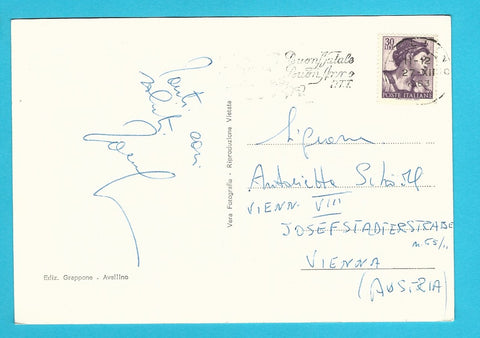 Tanti cari
saluti
Ediz. Grappone - Avellino
Vera Fotografia - Riproduzione Vietata
Buon Natale
Buon Anno
P.T.T.
30
POSTE ITALIANE
11-12
27.XII
Signora
Antonietta
VIENN. VIII
JOSEFSTADTERSTRABE
VIENNA
(AUSTRIA)